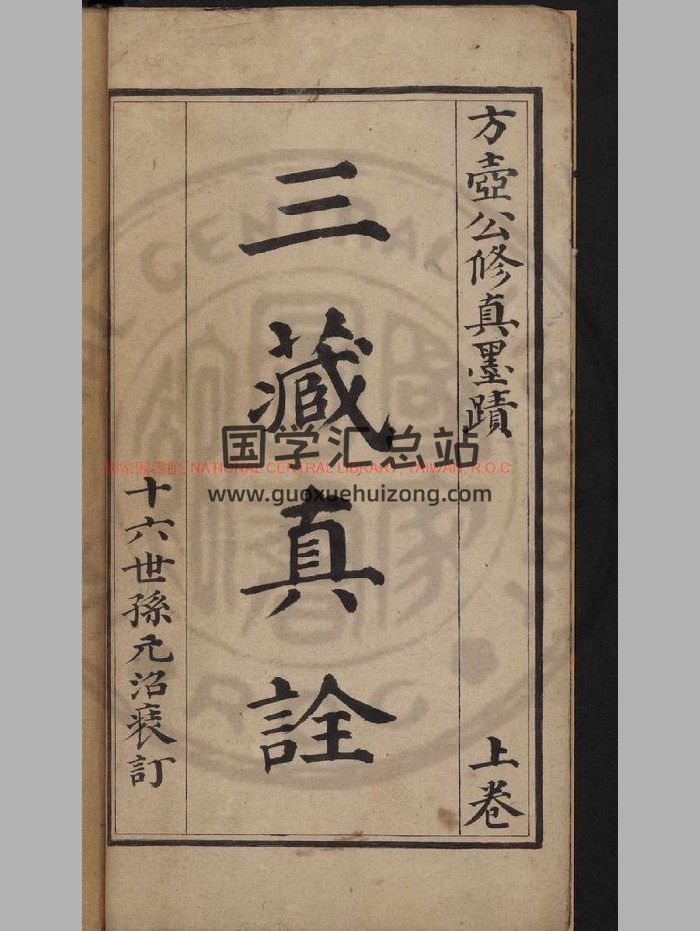 方壺公修真墨蹟
上卷
三藏真詮
十六世孫元沼裝訂
国学汇总站
國家圖書館, NATIONAL CENTRAL LIBRARY, TAIWAN, R.O.C
www.guoxuehuizong.com